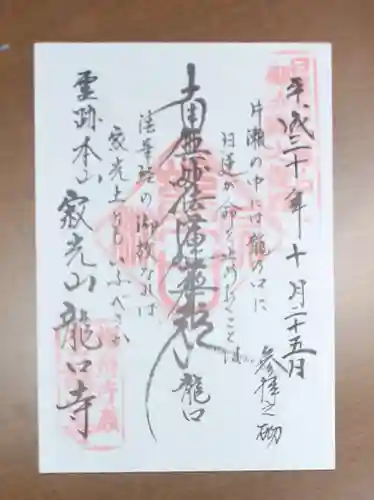 平成三十年十月二十五日
参拝之砌
片瀬の中には龍の口に
日蓮が命をとゞめおくことは
法華経の御故なれば
寂光土ともいふべきか
南無妙法蓮華経
龍口
霊跡本山 寂光山 龍口寺